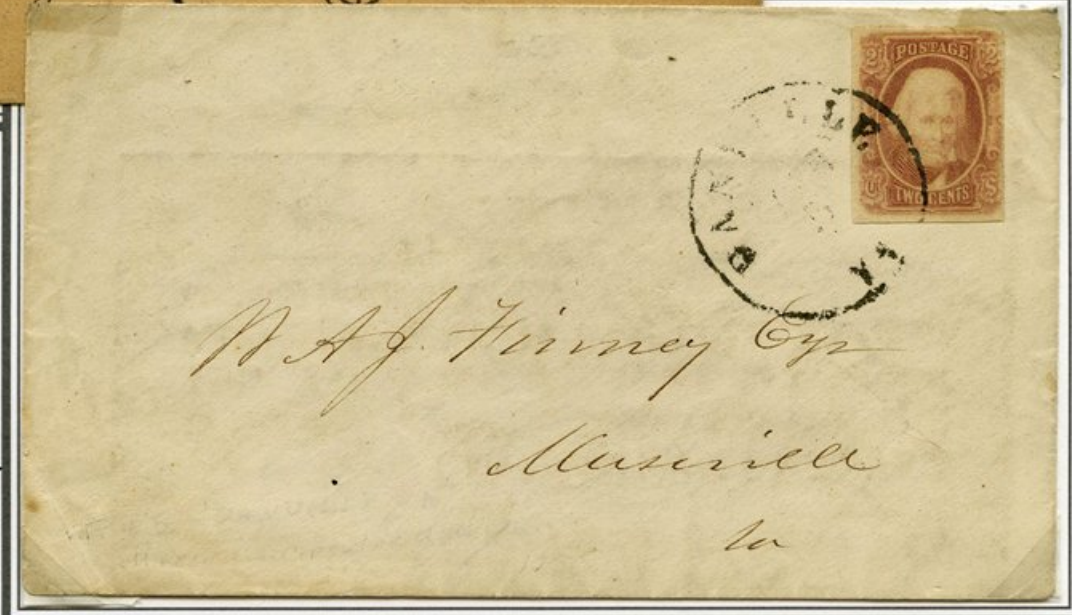 2 POSTAGE 2
TWO CENTS
DANVILLE
VA
W A J Finney Esqr
Museville
Va